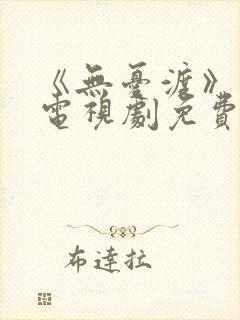 《無憂渡》
電視劇免費
布達拉